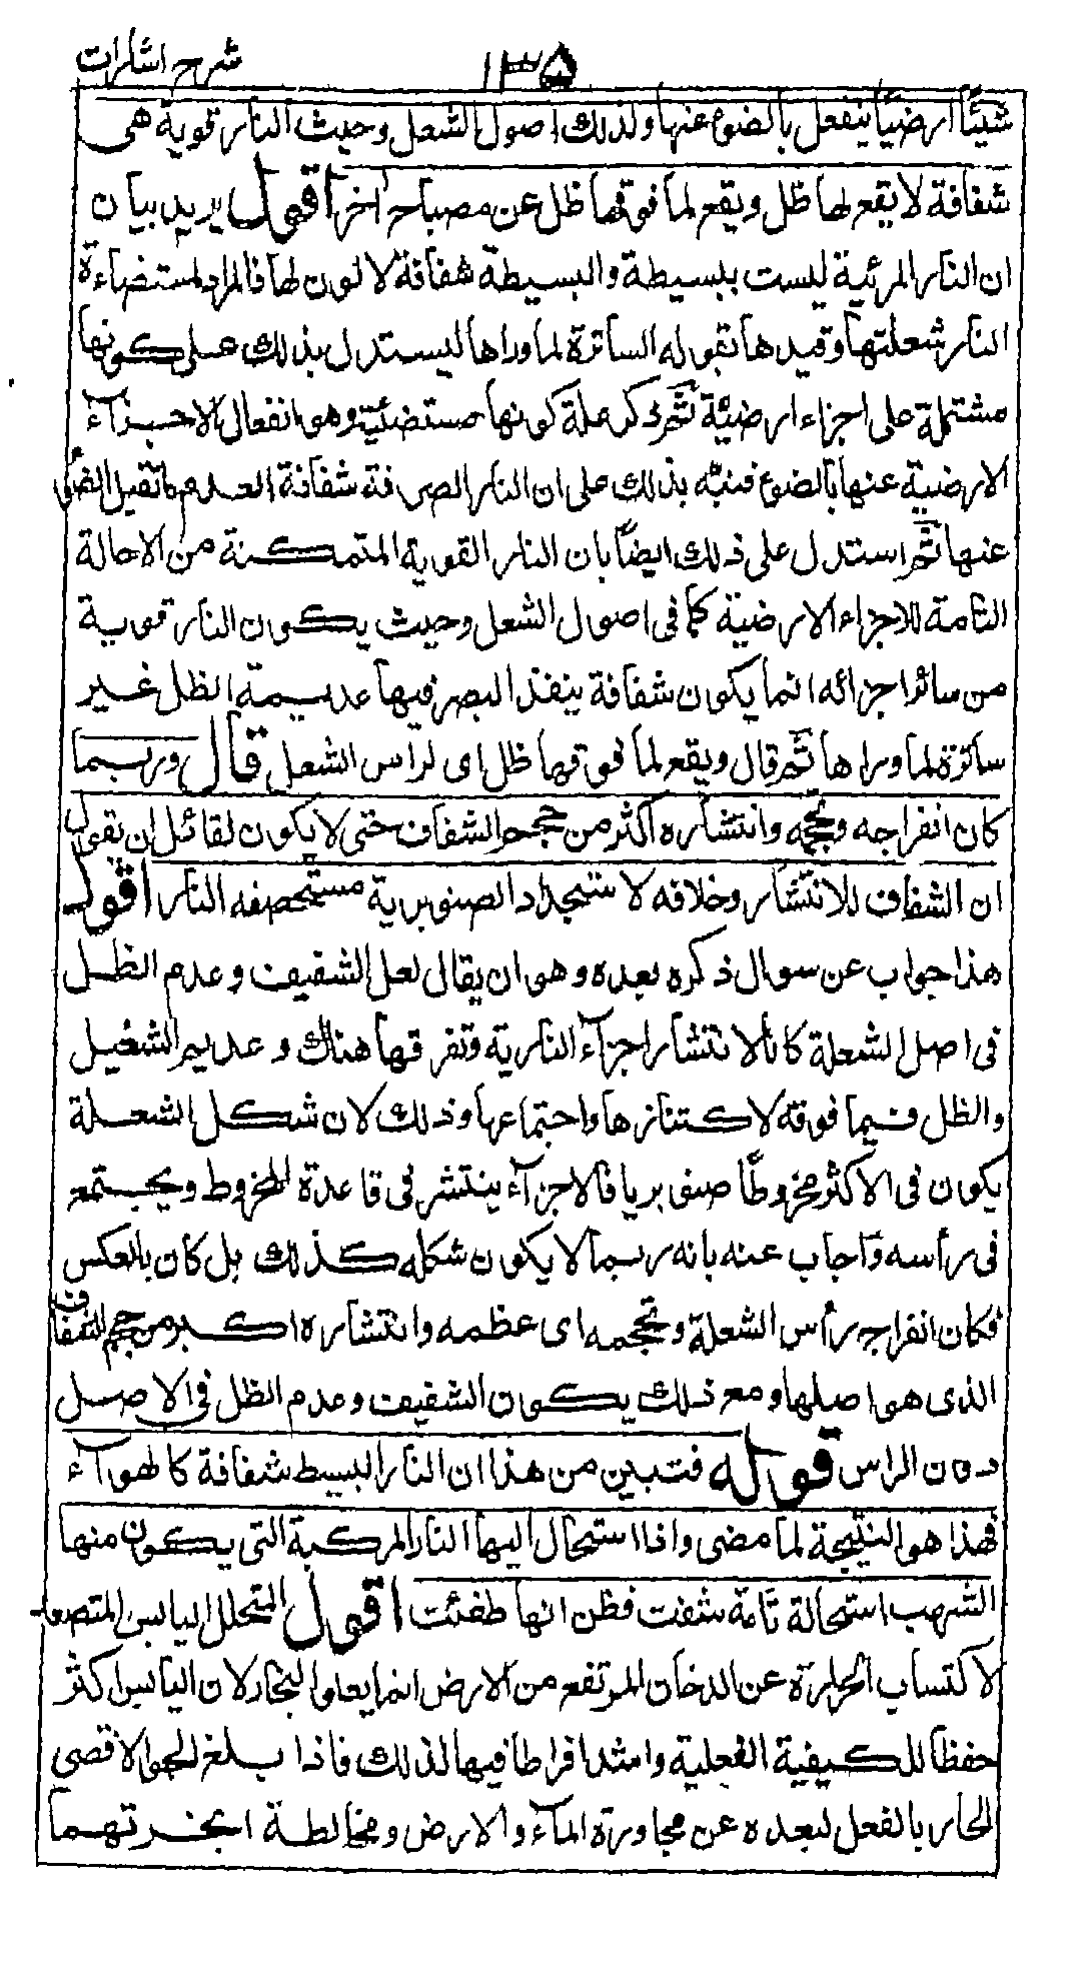 شرح اشارات
١٣٥
شيئًا ارضيًا ينفعل بالضوء عنها ولذلك اصول الشعل وحيث النار قوية هى
شفافة لا يقع لها ظل ويقع لما فوقها ظل عن مصباح اخر اقول يريد بيان
ان النار المرئية ليست ببسيطة والبسيطة شفافة لا لون لها فالمراد لمستضاءة
النار شعلتها وقيدها بقوله الساترة لما وراها ليستدل بذلك على كونها
مشتملة على اجزاء ارضيّة ثم ذكر علة كونها مستضئية وهو انفعال الاجزآء
الارضية عنها بالضوء فنبّه بذلك على ان النار الصرفة شفافة لعدم ما تقبل الضوء
عنها ثم استدل على ذلك ايضًا بان النار القوية المتمكنة من الاحالة
التامة للاجزاء الارضية كما فى اصول الشعل وحيث يكون النار قوية
من سائر اجزائه انما يكون شفافة ينفذ البصر فيها عديمة الظل غير
ساترة لما وراها ثم قال ويقع لما فوقها ظل اى لراس الشعل قال وربما
كان انفراجه وتحجمه وانتشاره اكثر من حجم الشفاف حتى لا يكون لقائل ان يقول
ان الشفاف للانتشار وخلافه لاستحداد الصنوبرية مستحصفه النار اقول
هذا جواب عن سوال ذكره بعده وهو ان يقال لعل الشفيف وعدم الظل
فى اصل الشعلة كانا لانتشار اجزآء النارية وتفرقها هناك و عديم الشفيل
والظل فيما فوقه لاكتنازها واجتماعها وذلك لان شكل الشعلة
يكون فى الاكثر مخروطًا صنوبريا فالاجزآء ينتشر فى قاعدة المخروط ويجتمع
فى رأسه وآجاب عنه بانه ربما لا يكون شكله كذلك بل كان بالعكس
فكان انفراج رأس الشعلة وتحجمه اى عظمه وانتشاره اكبر من حجم الشفاف
الذى هو اصلها ومع ذلك يكون الشفيف وعدم الظل فى الاصل
دون الراس قوله فتبين من هذا ان النار البسيط شفافة كالهوآء
فهذا هو النتيجة لما مضى واذا استحال اليها النار المركبة التى يكون منها
الشهب استحالة تامة شفت فظن انها طفئت اقول المتحلل اليابس المتصعد
لاكتساب الحرارة عن الدخان المرتفع من الارض انما يعلو البخار لان اليابس اكثر
حفظا للكيفية الفعلية واشد افراطا فيها لذلك فاذا بلغ الجو الاقصى
الحار بالفعل لبعده عن مجاورة المآء والارض ومخالطة ابخرتهما